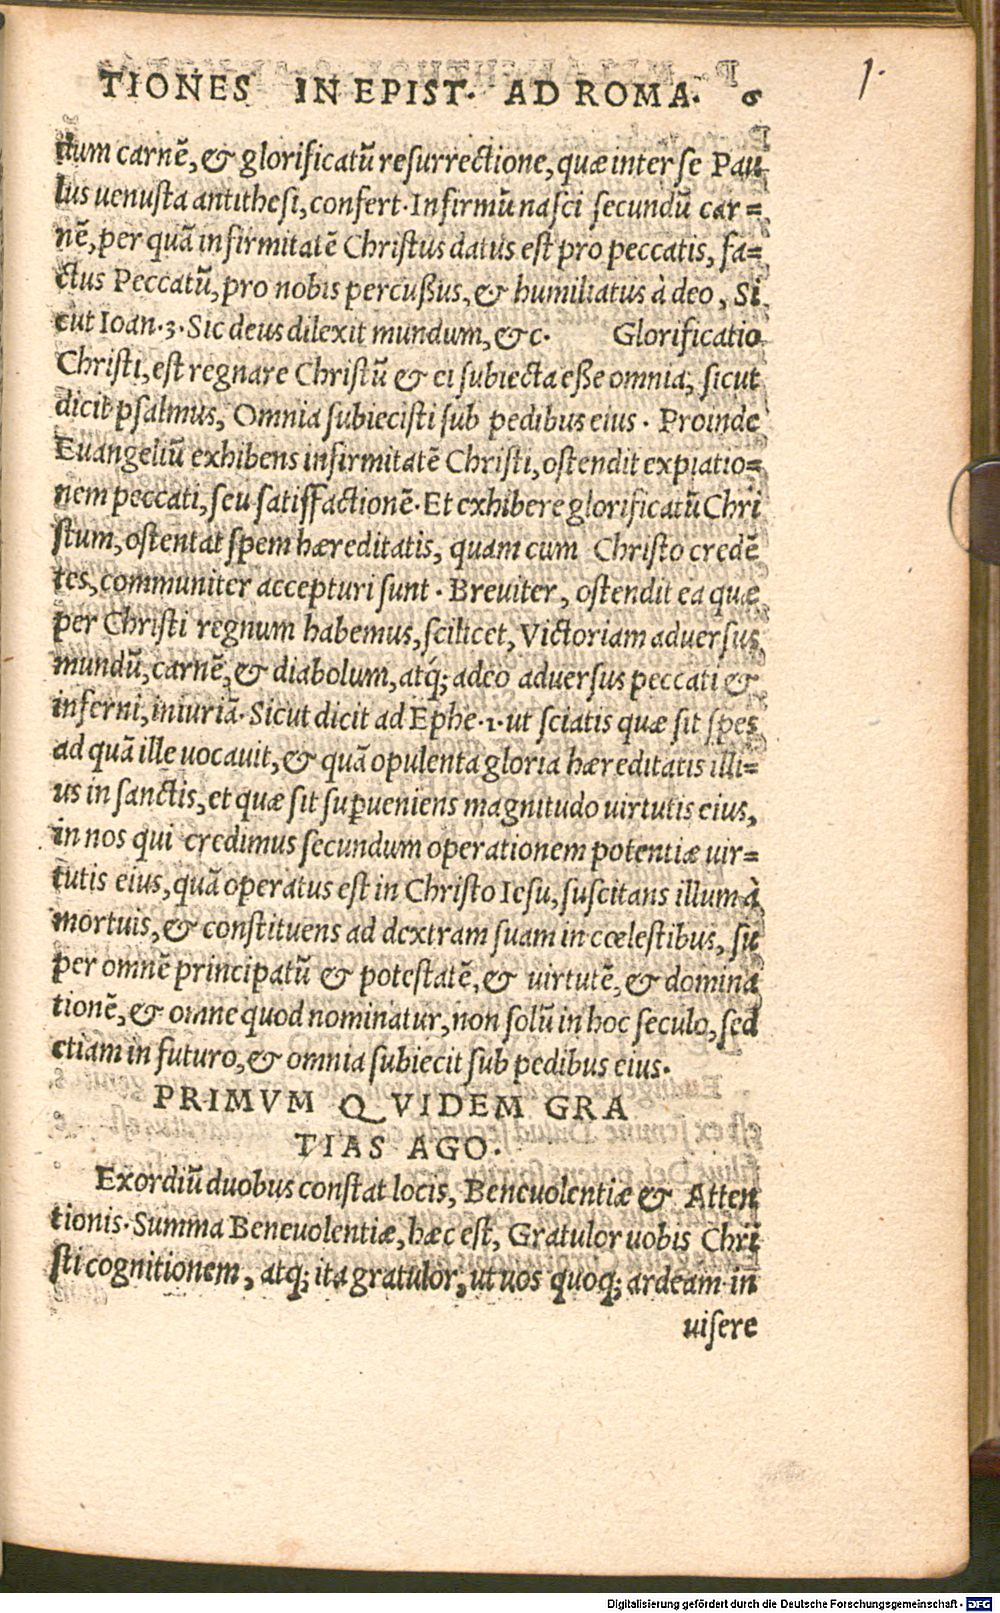 TIONES IN EPIST. AD ROMA. 6
1.
dum carnē, & glorificatū resurrectione, quæ inter se Pau
lus uenusta antithesi, confert. Infirmū nasci secundū car=
nē, per quā infirmitatē Christus datus est pro peccatis, fa=
ctus Peccatū, pro nobis percußus, & humiliatus à deo, Si
cut Ioan. 3. Sic deus dilexit mundum, &c. Glorificatio
Christi, est regnare Christū & ei subiecta eße omnia, sicut
dicit psalmus, Omnia subiecisti sub pedibus eius. Proinde
Euangeliū exhibens infirmitatē Christi, ostendit expiatio=
nem peccati, seu satisfactionē. Et exhibere glorificatū Chri
stum, ostentat spem hæreditatis, quam cum Christo credē
tes, communiter accepturi sunt. Breuiter, ostendit ea quæ
per Christi regnum habemus, scilicet, Victoriam aduersus
mundū, carnē, & diabolum, atq́; adeo aduersus peccati &
inferni, iniuriā. Sicut dicit ad Ephe. 1. ut sciatis quæ sit spes
ad quā ille uocauit, & quā opulenta gloria hæreditatis illi=
us in sanctis, et quæ sit suꝑueniens magnitudo uirtutis eius,
in nos qui credimus secundum operationem potentiæ uir=
tutis eius, quā operatus est in Christo Iesu, suscitans illum à
mortuis, & constituens ad dextram suam in cœlestibus, su
per omnē principatū & potestatē, & uirtutē, & domina
tionē, & omne quod nominatur, non solū in hoc seculo, sed
etiam in futuro, & omnia subiecit sub pedibus eius.
PRIMVM QVIDEM GRA
TIAS AGO.
Exordiū duobus constat locis, Beneuolentiæ & Atten
tionis. Summa Beneuolentiæ, hæc est, Gratulor uobis Chri
sti cognitionem, atq; ita gratulor, ut uos quoq; ardeam in
uisere
Digitalisierung gefördert durch die Deutsche Forschungsgemeinschaft - DFG